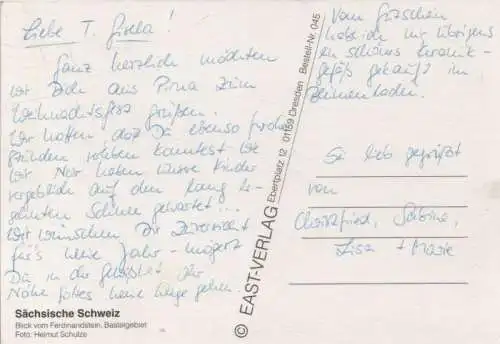 Liebe T. Gisela!
Ganz herzlich möchten
wir Dich aus Pirna zum
Weihnachtsfest grüßen.
Wir hoffen, daß Du ebenso frohe
Stunden erleben konntest wie
wir. Nur haben unsere Kinder
vergeblich auf den lang er-
sehnten Schnee gewartet...
Wir wünschen Dir Zuversicht
für's neue Jahr - mögest
Du in der Gewißheit der
Nähe Gottes neue Wege gehen.
Sächsische Schweiz
Blick vom Ferdinandstein, Basteigebiet
Foto: Helmut Schulze
© EAST-VERLAG Ebertplatz 12 01159 Dresden Bestell-Nr. 045
Vom Gutschein
habe ich mir übrigens
ein schönes Keramik-
gefäß gekauft im
Sei lieb gegrüßt
von
Christfried, Sabine,
Lisa + Marie